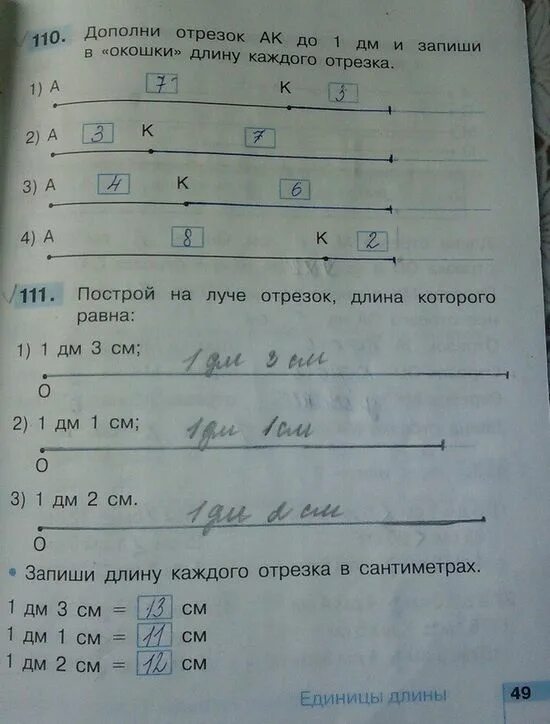 110. Дополни отрезок АК до 1 дм и запиши
в «окошки» длину каждого отрезка.
1) А 7 К 3
2) А 3 К 7
3) А 4 К 6
4) А 8 К 2
111. Построй на луче отрезок, длина которого
равна:
1) 1 дм 3 см;
1 дм 3 см
О
2) 1 дм 1 см;
1 дм 1 см
О
3) 1 дм 2 см.
1 дм 2 см
О
• Запиши длину каждого отрезка в сантиметрах.
1 дм 3 см = 13 см
1 дм 1 см = 11 см
1 дм 2 см = 12 см
Единицы длины 49